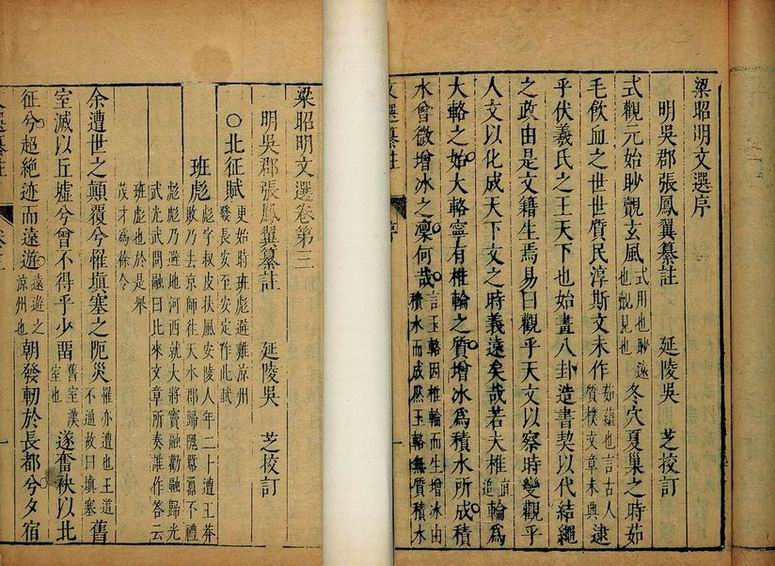 梁昭明文選序
明吳郡張鳳翼纂註 延陵吳 芝校訂
式觀元始眇覿玄風式用也眇遠也覿見也冬穴夏巢之時茹
毛飲血之世世質民淳斯文未作茹蘊也言古人質樸文章未興逮
乎伏羲氏之王天下也始畫八卦造書契以代結繩
之政由是文籍生焉易曰觀乎天文以察時變觀乎
人文以化成天下文之時義遠矣哉若夫椎直追輪爲
大輅之始大輅寧有椎輪之質增冰爲積水所成積
水曾微增冰之凜何哉言玉輅因椎輪而生增冰由積水而成然玉輅無質積水
文選纂註 序 一
梁昭明文選卷第三
明吳郡張鳳翼纂註 延陵吳 芝校訂
○北征賦更始時班彪避難凉州發長安至安定作此賦
班彪彪字叔皮扶風安陵人年二十遭王莽敗乃去京師往天水郡歸隗囂囂不禮
彪彪乃避地河西就大將竇融勸融歸光武光武問融曰比來文章所奏誰作答云
班彪也於是舉茂才爲徐令
余遭世之顛覆兮罹填塞之阨災罹亦遭也王道不通故曰填塞舊
室滅以丘墟兮曾不得乎少畱舊室漢室也遂奮袂以北
征兮超絶迹而遠遊遠遊之凉州也朝發軔於長都兮夕宿